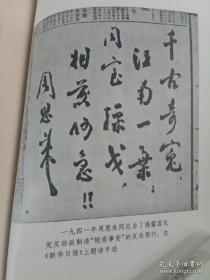 千古奇冤
江南一葉;
同室操戈,
相煎何急!!
周恩来
一九四一年周恩来同志为了揭露国民
党反动派制造“皖南事变”的反共罪行,在
《新华日报》上题诗手迹